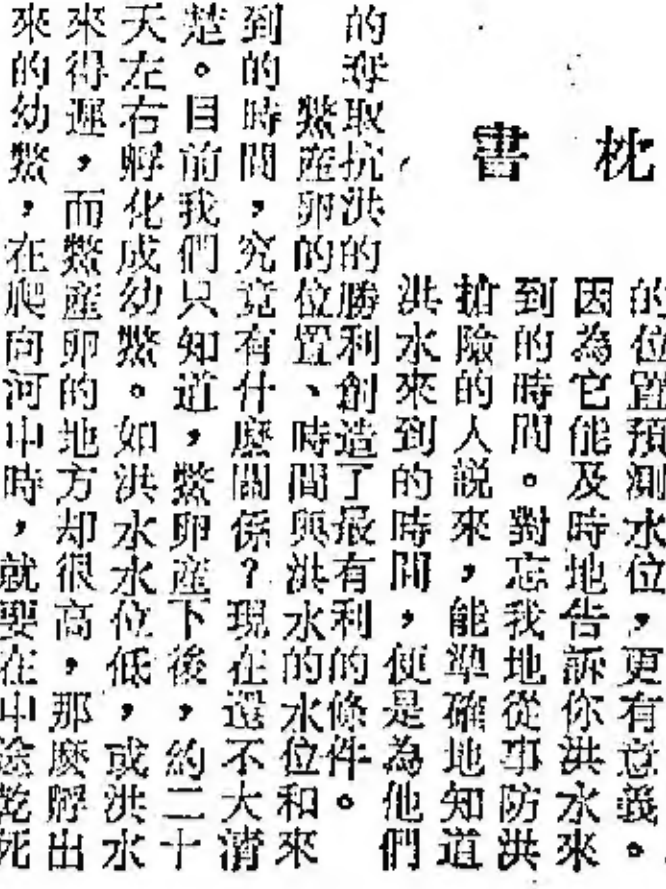 枕書
的位置預測水位，更有意義。
因為它能及時地告訴你洪水來
到的時間。對忘我地從事防洪
搶險的人説來，能準確地知道
洪水來到的時間，便是為他們
的奪取抗洪的勝利創造了最有利的條件。
鱉産卵的位置、時間與洪水的水位和來
到的時間，究竟有什麽關係？現在還不大清
楚。目前我們只知道，鱉卵産下後，約二十
天左右孵化成幼鱉。如洪水水位低，或洪水
來得遲，而鱉産卵的地方却很高，那麽孵出
來的幼鱉，在爬向河中時，就要在中途乾死